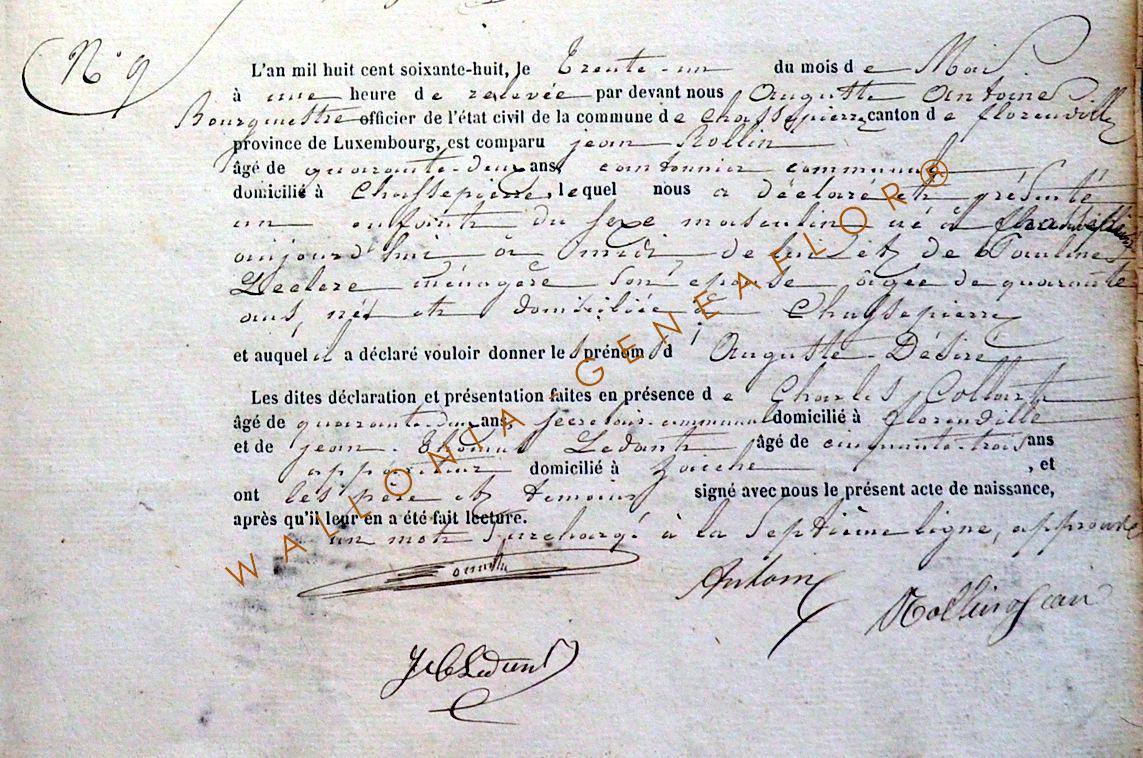 N° 9
L'an mil huit cent soixante-huit, le Trente-un du mois de Mai
à une heure de relevée par devant nous Auguste Antoine
Bourgmestre officier de l'état civil de la commune de Chassepierre canton de florenville
province de Luxembourg, est comparu jean Rollin
âgé de quarante-deux ans, cantonnier communal
domicilié à Chassepierre, lequel nous a déclaré et présenté
un enfant du sexe masculin né à
aujourd'hui à midi, de lui et de Pauline
Leclere ménagère son épouse âgée de quarante
ans, née et domiciliée à Chassepierre
et auquel il a déclaré vouloir donner les prénoms d'Auguste-Désiré
Les dites déclaration et présentation faites en présence de Charles Collart
âgé de quarante-deux ans, secretair-communal domicilié à florenville
et de jean-Thomas Ledant, âgé de cinquante-trois ans
appariteur domicilié à Laiche, et
ont les père et temoins signé avec nous le présent acte de naissance,
après qu'il leur en a été fait lecture.
un mot surchargé à la septième ligne, approuvé
Antoine
Rollin jean
WALLONIA GENEAFLOR®